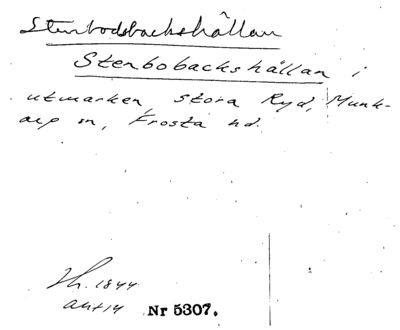 Stenbodsbackshållan
Stenbobackshållan i
utmarken, stora Ryd, Munk-
arp sn, Frosta hd.
1844
Nr 5307.